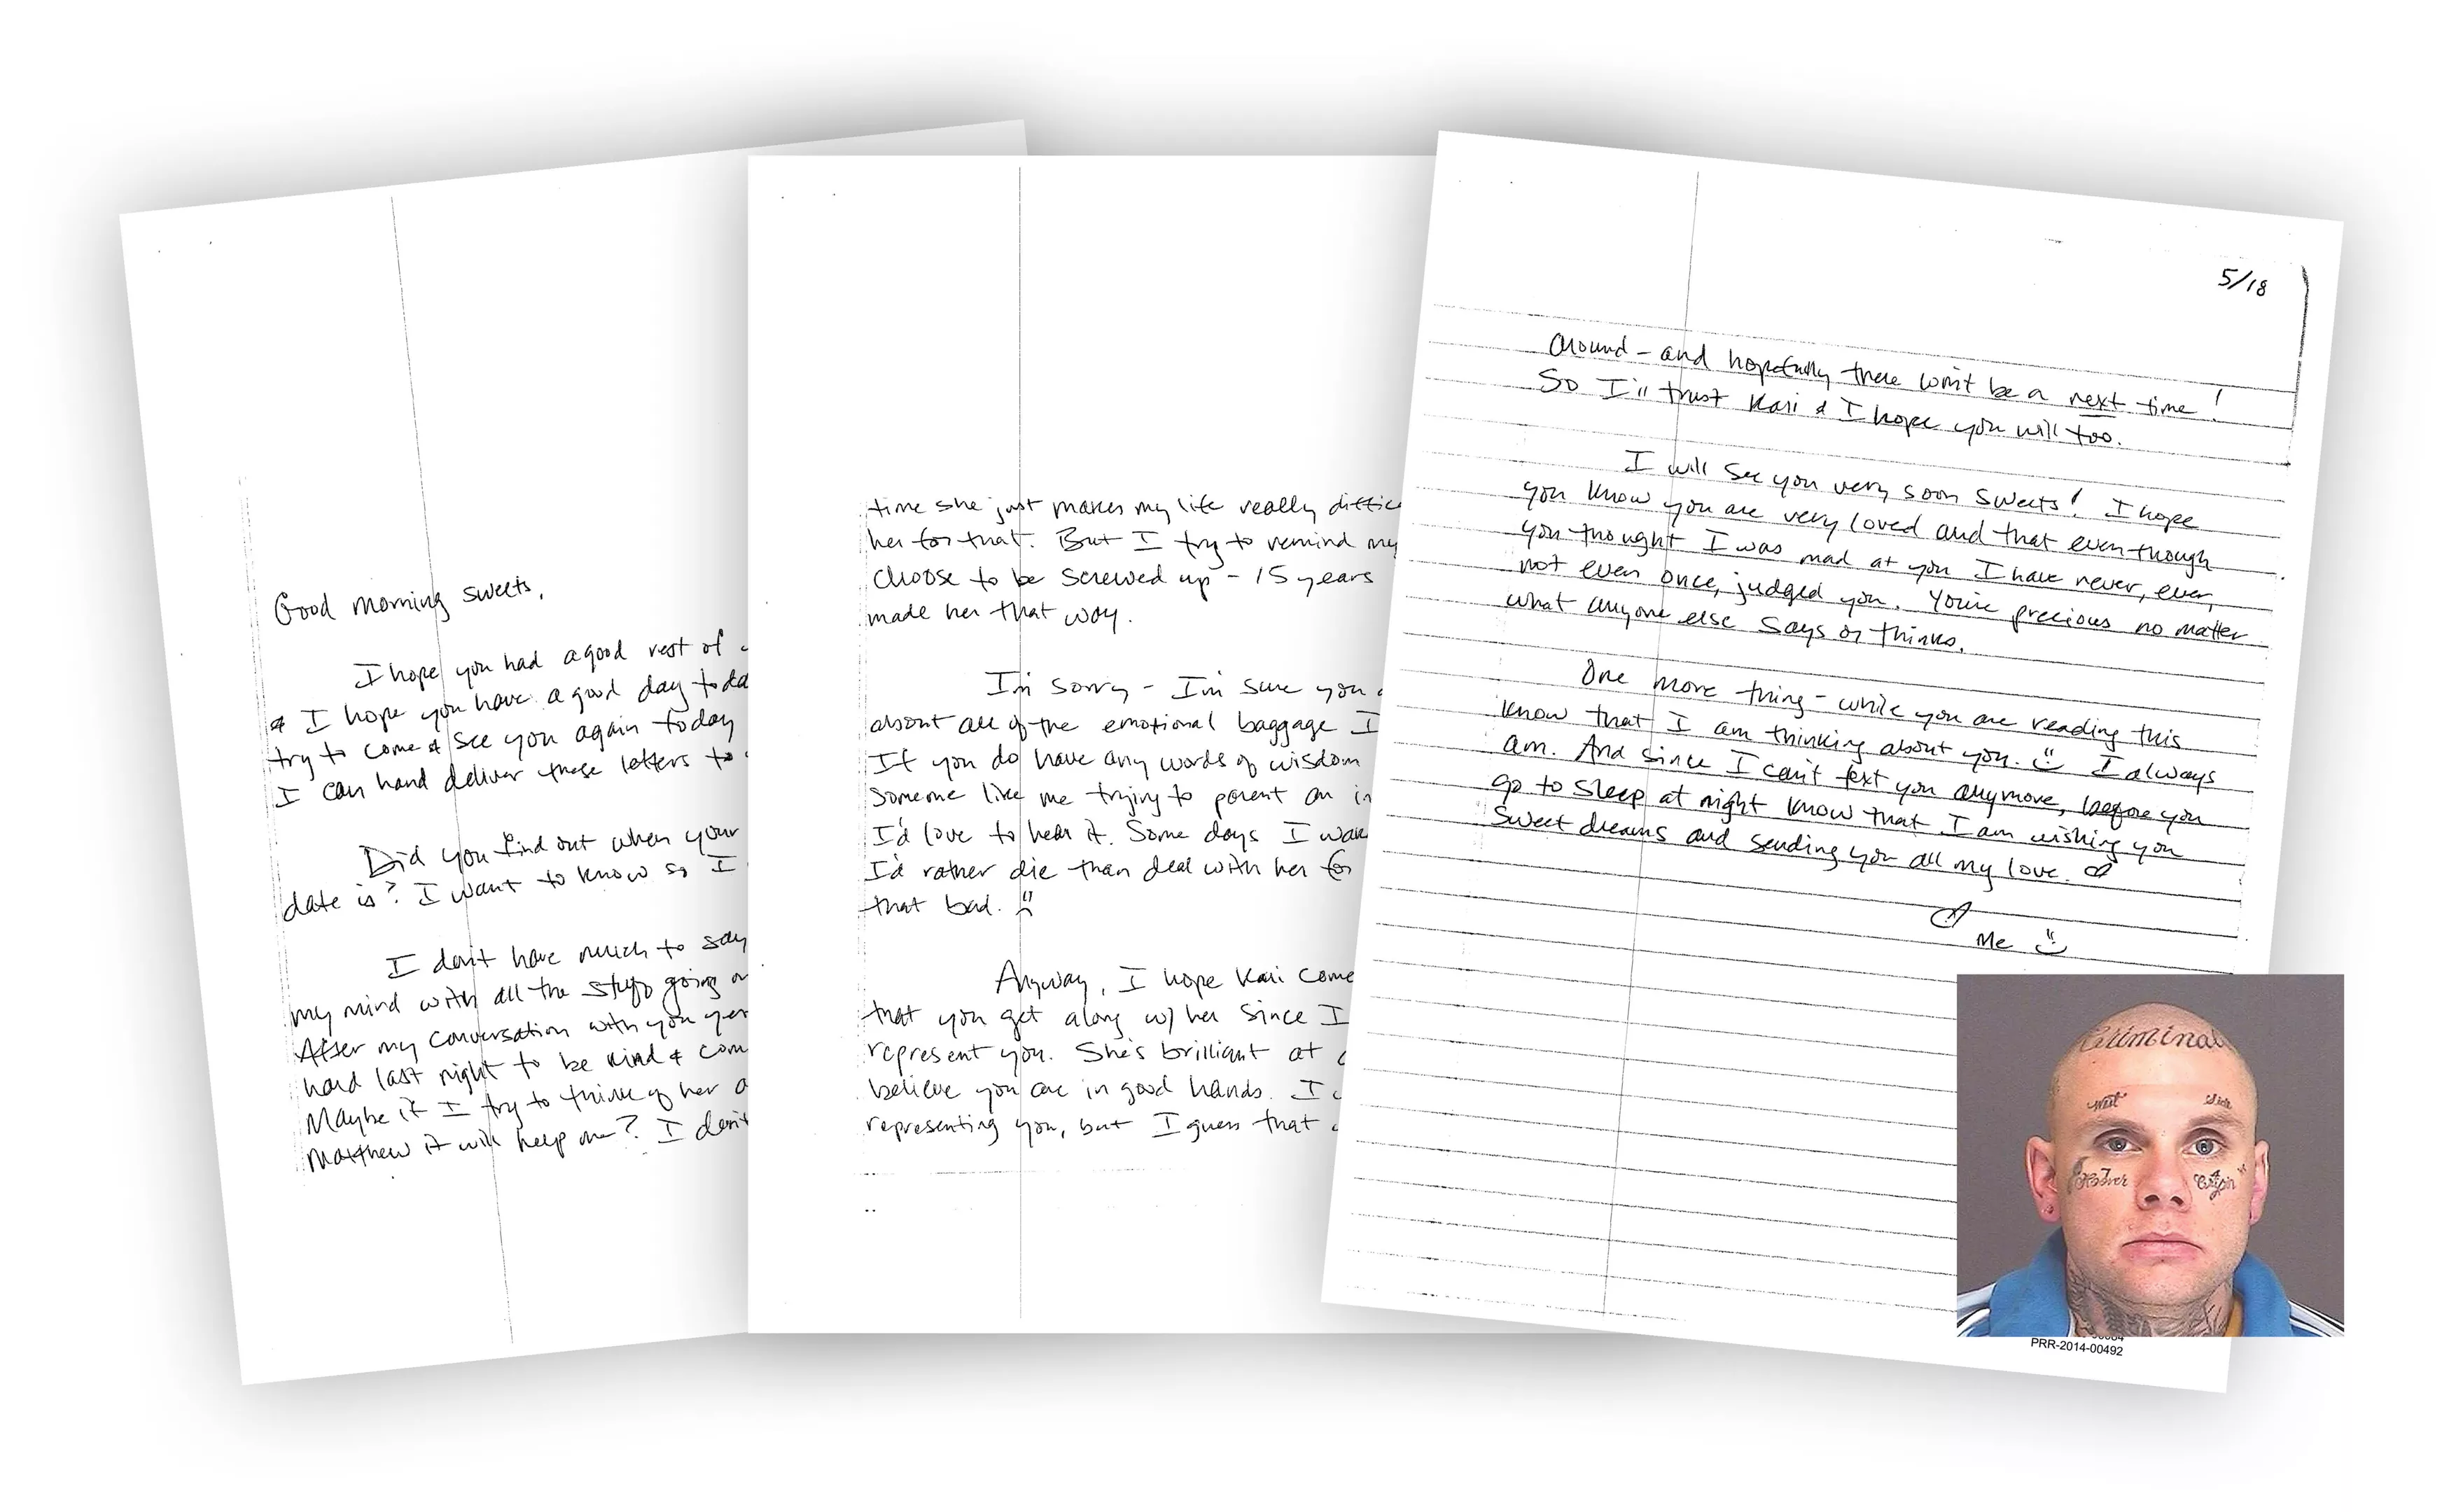 Good morning sweets,
I hope you had a good rest of
& I hope you have a good day toda
try to come & see you again today
I can hand deliver these letters to
Did you find out when your
date is? I want to know so I
I don't have much to say
my mind with all the stuff going
After my conversation with you yes
hard last night to be kind & com
Maybe if I try to think of her a
Matthew it will help me? I don't
time she just makes my life really diffic
her for that. But I try to remind my
choose to be screwed up - 15 years
made her that way.
I'm sorry - I'm sure you
about all of the emotional baggage I
If you do have any words of wisdom
someone like me trying to parent an in
I'd love to hear it. Some days I wake
I'd rather die than deal with her fo
that bad.
Anyway, I hope Kari come
that you get along w/ her since I
represent you. She's brilliant at
believe you are in good hands. I
representing you, but I guess that
5/18
around - and hopefully there won't be a next time!
So I'll trust Kari & I hope you will too.
I will see you very soon sweets! I hope
you know you are very loved and that even though
you thought I was mad at you I have never, ever,
not even once, judged you. You're precious no matter
what anyone else says or thinks.
One more thing - while you are reading this
know that I am thinking about you. I always
am. And since I can't text you anymore, before you
go to sleep at night know that I am wishing you
sweet dreams and sending you all my love.
Me
Criminal
West Side
PRR-2014-00492